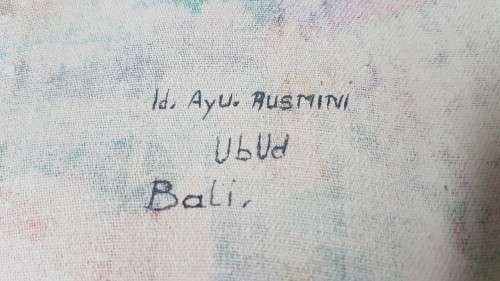 Id. Ayu. RUSMINI
UbUd
Bali.